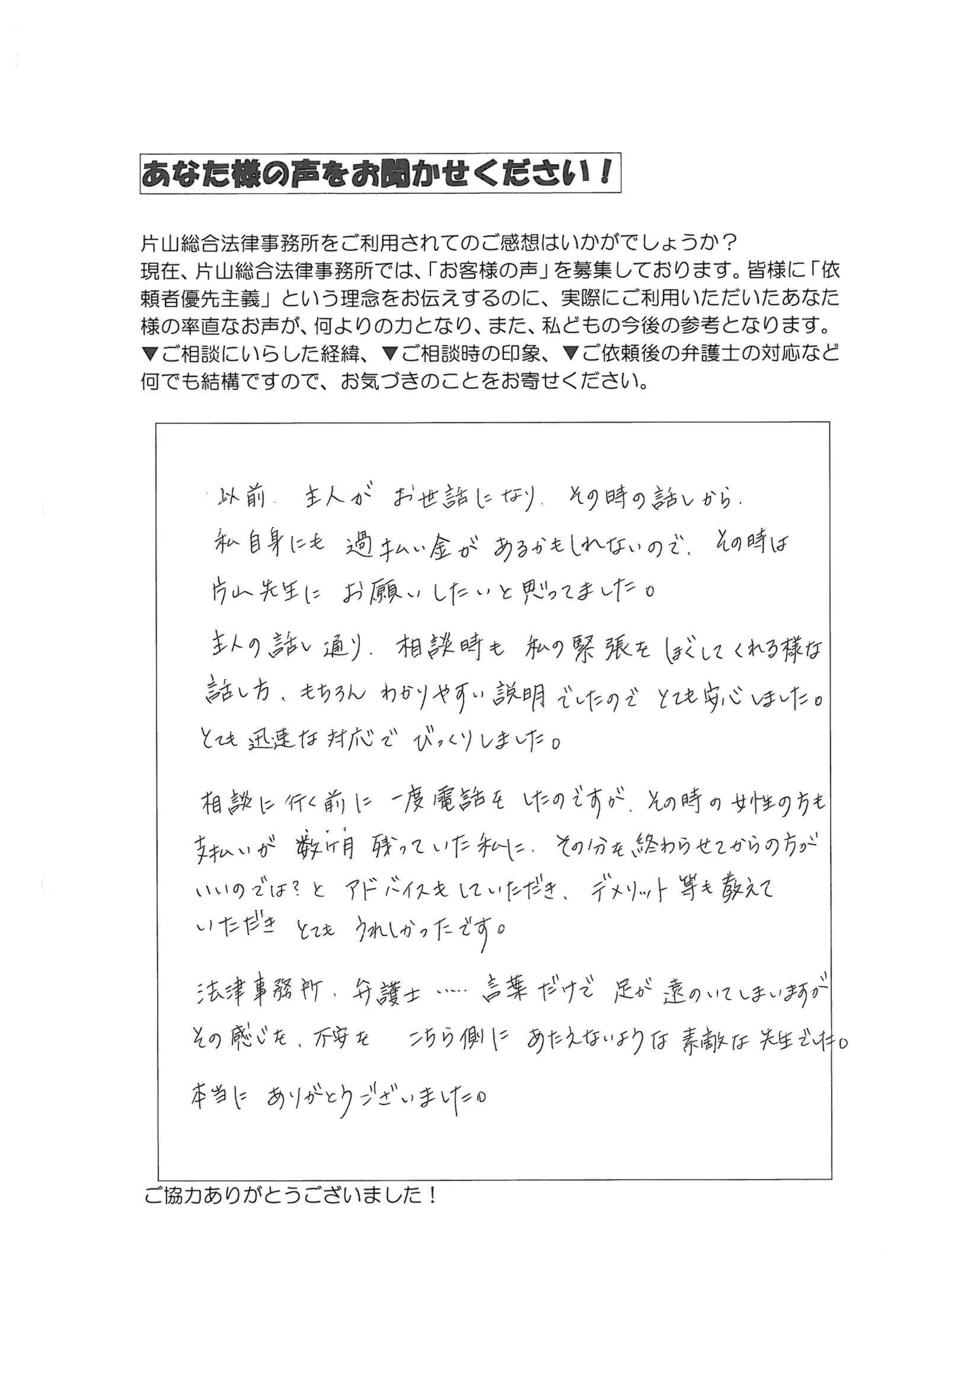 あなた様の声をお聞かせください！
片山総合法律事務所をご利用されてのご感想はいかがでしょうか？
現在、片山総合法律事務所では、「お客様の声」を募集しております。皆様に「依
頼者優先主義」という理念をお伝えするのに、実際にご利用いただいたあなた
様の率直なお声が、何よりの力となり、また、私どもの今後の参考となります。
▼ご相談にいらした経緯、▼ご相談時の印象、▼ご依頼後の弁護士の対応など
何でも結構ですので、お気づきのことをお寄せください。
以前、主人がお世話になり、その時の話しから、
私自身にも過払い金があるかもしれないので、その時は
片山先生にお願いしたいと思ってました。
主人の話し通り、相談時も私の緊張をほぐしてくれる様な
話し方、もちろんわかりやすい説明でしたのでとても安心しました。
とても迅速な対応でびっくりしました。
相談に行く前に一度電話をしたのですが、その時の女性の方も
支払いが数ヶ月残っていた私に、その分を終わらせてからの方が
いいのでは？とアドバイスをしていただき、デメリット等も教えて
いただきとてもうれしかったです。
法律事務所、弁護士……言葉だけで足が遠のいてしまいますが
その感じを、不安をこちら側にあたえないような素敵な先生でした。
本当にありがとうございました。
ご協力ありがとうございました！